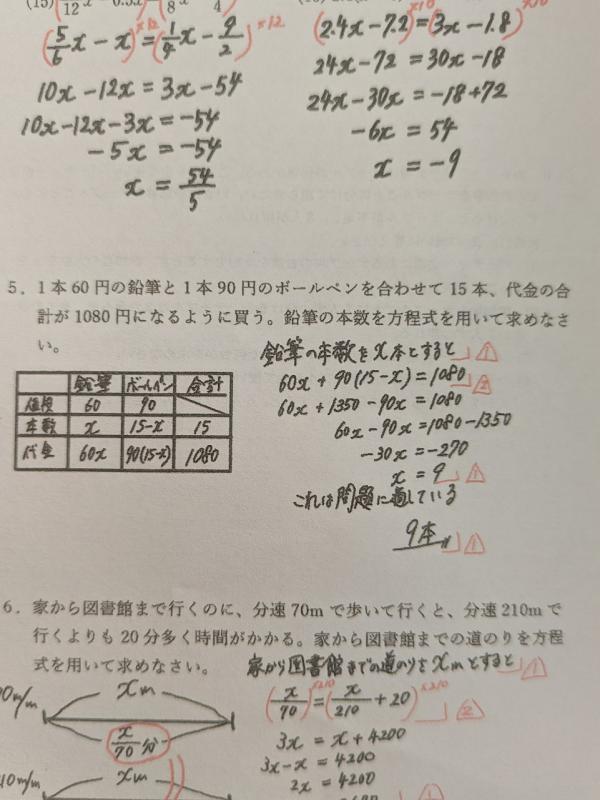 (5/6 x - x)×12 = (1/4 x - 9/2)×12
10x - 12x = 3x - 54
10x - 12x - 3x = -54
-5x = -54
x = 54/5
(2.4x - 7.2)×10 = (3x - 1.8)×10
24x - 72 = 30x - 18
24x - 30x = -18 + 72
-6x = 54
x = -9
5．1本60円の鉛筆と1本90円のボールペンを合わせて15本、代金の合
計が1080円になるように買う。鉛筆の本数を方程式を用いて求めなさ
い。
鉛筆 ボールペン 合計
値段 60 90
本数 x 15-x 15
代金 60x 90(15-x) 1080
鉛筆の本数をx本とすると 1
60x + 90(15-x) = 1080 2
60x + 1350 - 90x = 1080
60x - 90x = 1080 - 1350
-30x = -270
x = 9 1
これは問題に適している
9本 1
6．家から図書館まで行くのに、分速70mで歩いて行くと、分速210mで
行くよりも20分多く時間がかかる。家から図書館までの道のりを方程
式を用いて求めなさい。
家から図書館までの道のりをxmとすると 1
xm
x/70 分
xm
(x/70)×210 = (x/210 + 20)×210 2
3x = x + 4200
3x - x = 4200
2x = 4200